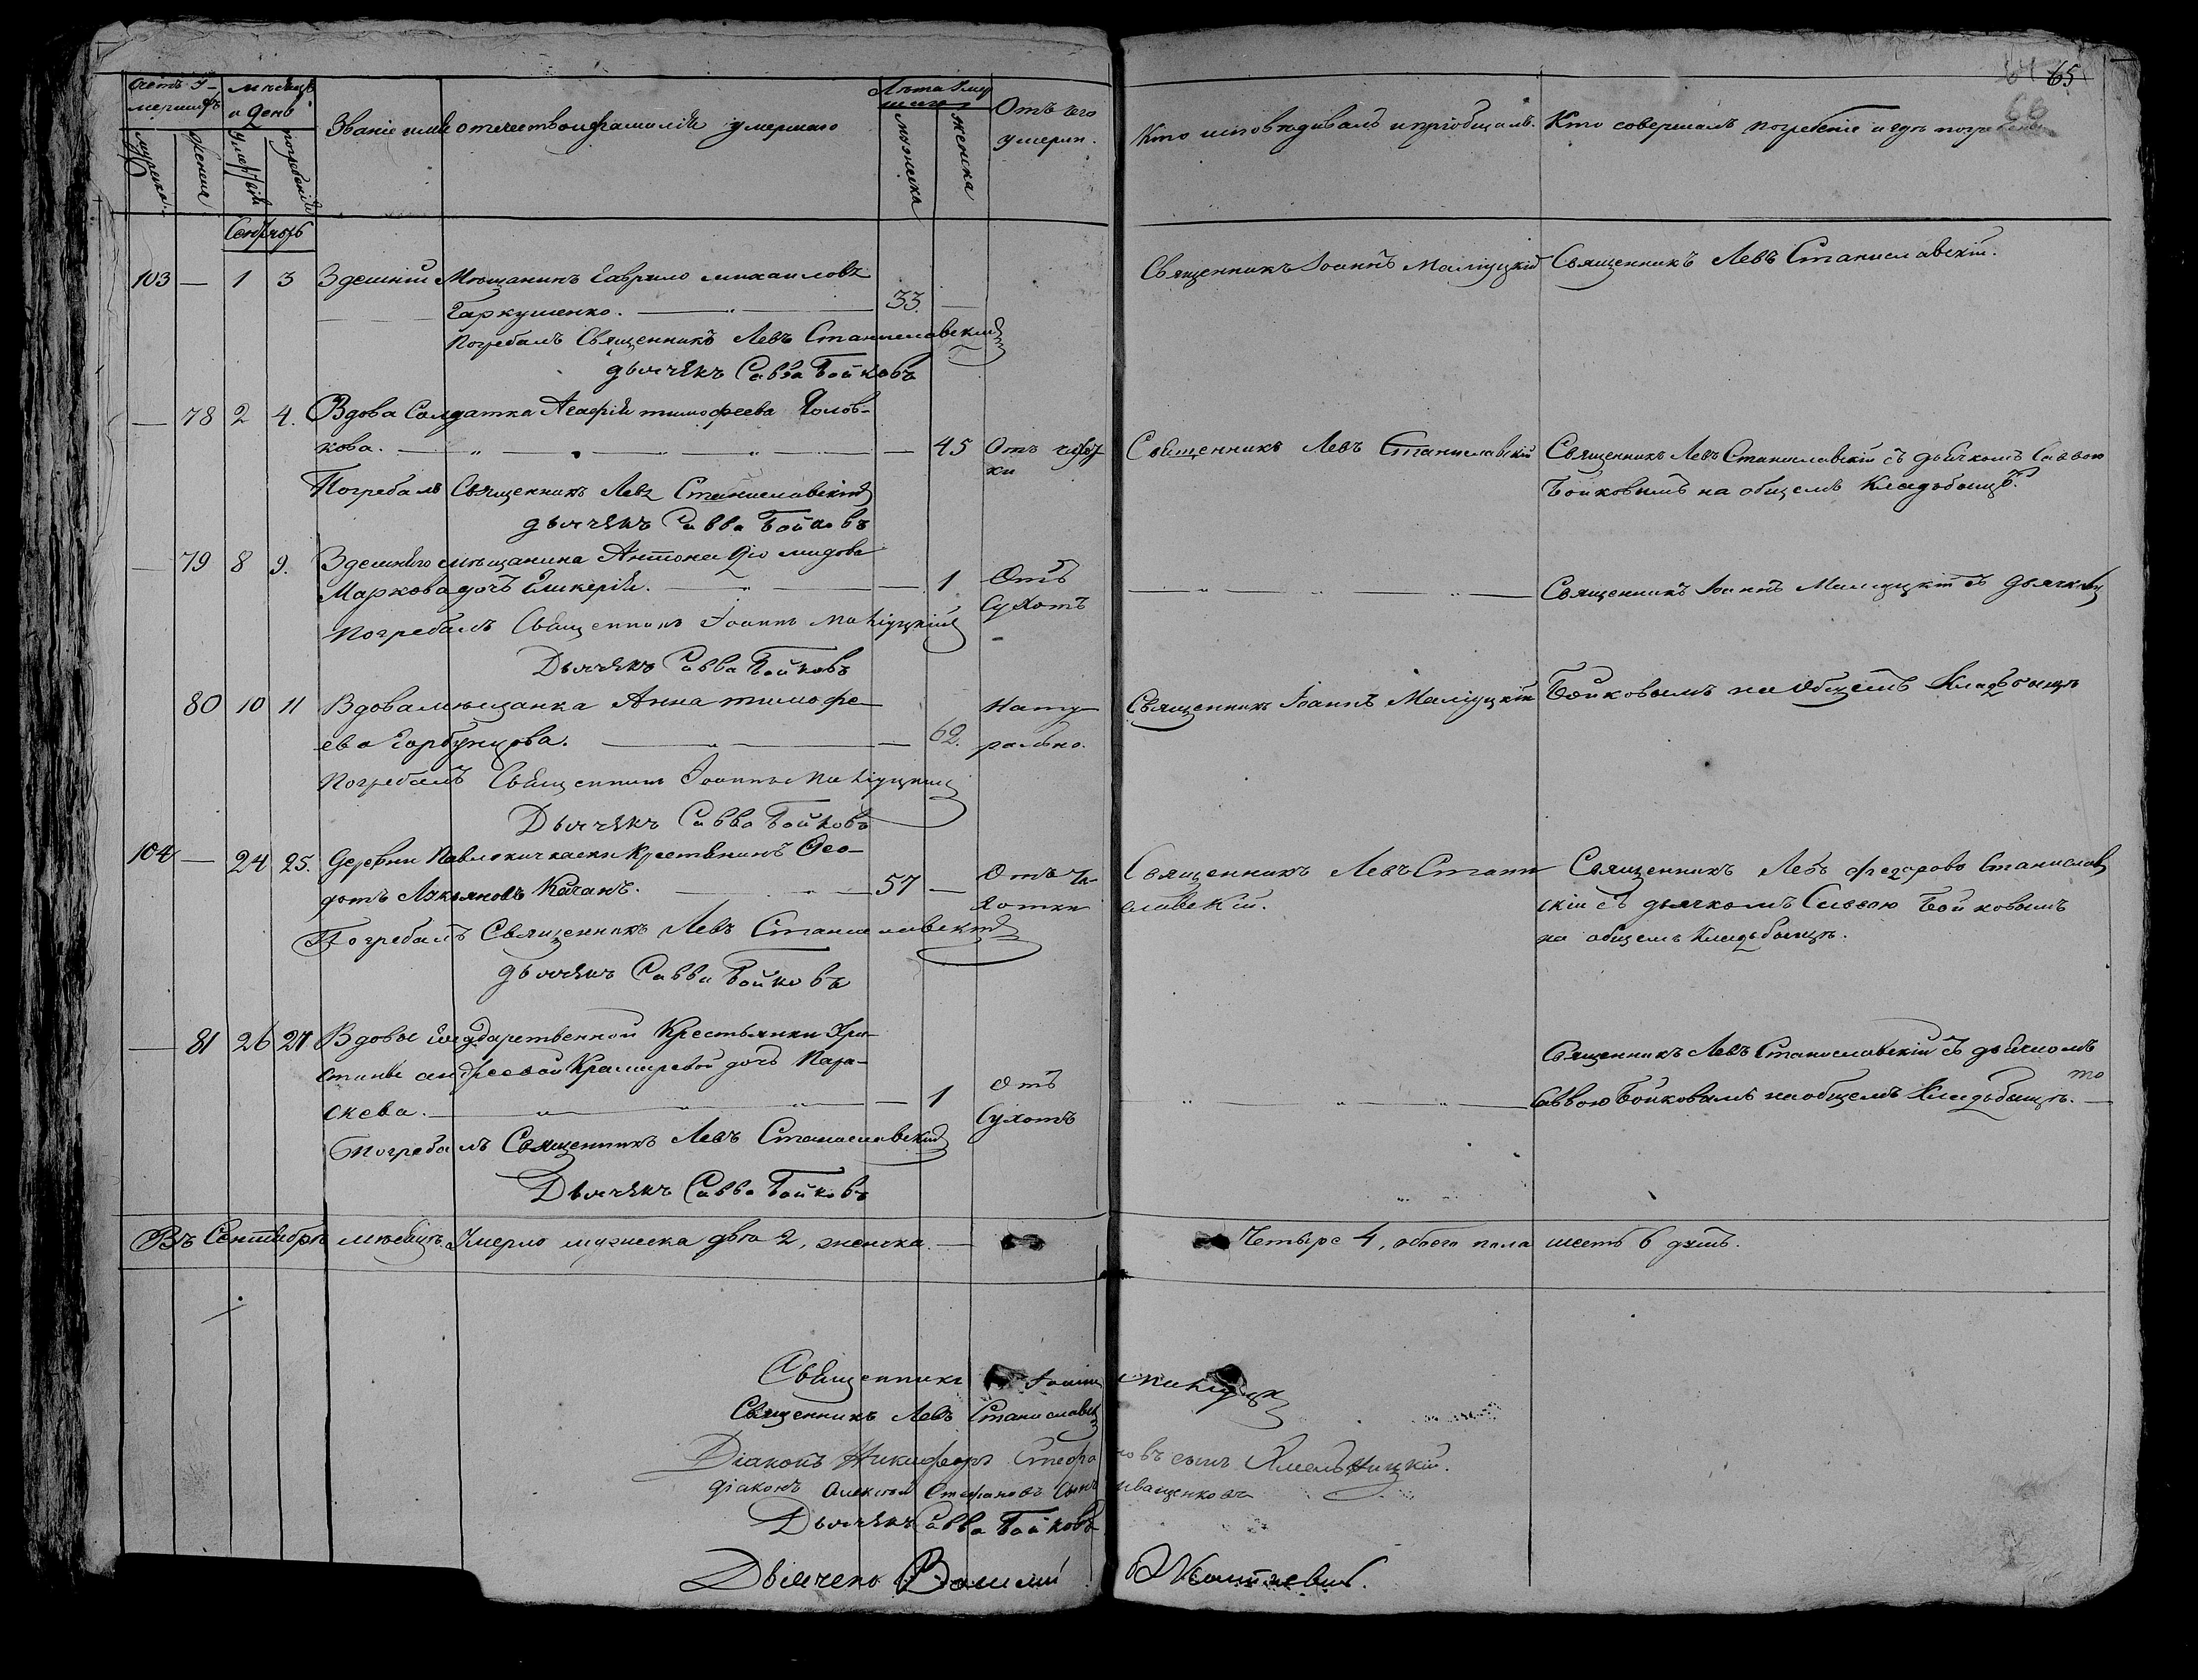 65
66
Счетъ У-
мершихъ
мѣсяцъ
и день
Званіе имя отечество и фамилія умершаго
Лѣта умер
шаго
Отъ чего
умеръ.
Кто исповѣдывалъ и пріобщалъ.
Кто совершалъ погребеніе и гдѣ погребены
мужеска.
женска
смерти
погребенія
мужеска
женска
Сентябрь
103 — 1 3 Здешній Мѣщанинъ Гаврило михаиловъ
Гаркушенко. 33. —
Священникъ Іоаннъ Маліуцкій
Священникъ Левъ Станиславскій.
Погребалъ Священникъ Левъ Станиславскій
дьячекъ Савва Бойковъ
— 78 2 4. Вдова Солдатка Агафія тимофеева Голов-
кова. — 45 Отъ чахот
ки
Священникъ Левъ Станиславскій
Священникъ Левъ Станиславскій съ дьячкомъ Саввою
Бойковымъ на общемъ Кладьбищѣ.
Погребалъ Священникъ Левъ Станиславскій
дьячекъ Савва Бойковъ
— 79 8 9. Здешняго мѣщанина Антона Диомидова
Маркова дочь Гликерія. — 1 Отъ
Сухотъ
Священникъ Іоаннъ Маліуцкій съ дьячкомъ
Погребалъ Священникъ Іоаннъ Маліуцкій
Дьячекъ Савва Бойковъ
80 10 11 Вдова мѣщанка Анна тимофе-
ева Горбунцова. — 62. Нату-
рально.
Священникъ Іоаннъ Маліуцкій
Бойковымъ на Общемъ Кладбищѣ
Погребалъ Священникъ Іоаннъ Маліуцкій
Дьячекъ Савва Бойковъ
104 — 24 25. Деревни Крестьянинъ Фео-
дотъ Лукьяновъ Качанъ. 57 — Отъ Ча-
хотки
Священникъ Левъ Стани
славскій.
Священникъ Левъ Федорово Станислав
скій съ дьячкомъ Саввою Бойковымъ
на общемъ Кладьбищѣ.
Погребалъ Священникъ Левъ Станиславскій
дьячекъ Савва Бойковъ
— 81 26 27 Вдовы Государственной Крестьянки Хри-
стины андреевой дочь Пара-
скева. — 1 Отъ
Сухотъ
Священникъ Левъ Станиславскій съ дьячкомъ
Саввою Бойковымъ на общемъ Кладьбищѣ.
Погребалъ Священникъ Левъ Станиславскій
Дьячекъ Савва Бойковъ
Въ Сентябрѣ мѣсяцѣ Умерло мужеска два 2, женска — Четыре 4, обоего пола шесть 6 душъ.
Священникъ Іоаннъ Маліуцкій
Священникъ Левъ Станиславскій
Діаконъ Никифоръ Стефановъ сынъ Хмельницкій.
діаконъ Алексѣй Стефановъ Сынъ Иващенковъ
Дьячекъ Савва Бойковъ
Дьячекъ Василій